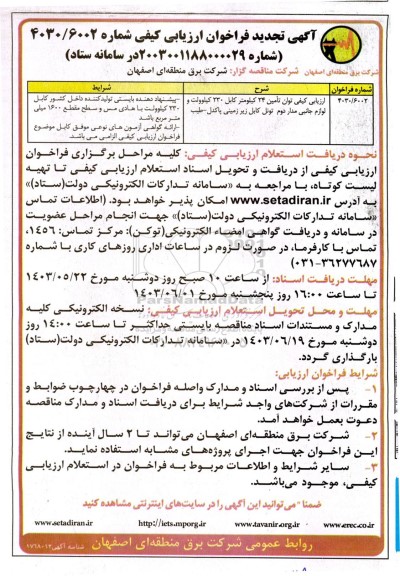 آگهی تجدید فراخوان ارزیابی کیفی شماره ۴۰۳۰/۶۰۰۲
(شماره ۲۰۰۳۰۰۱۱۸۸۰۰۰۰۲۹ در سامانه ستاد)
شرکت برق منطقه‌ای اصفهان
شرکت مناقصه گزار: شرکت برق منطقه‌ای اصفهان
شماره فراخوان
شرح
شرایط
۴۰۳۰/۶۰۰۲
ارزیابی کیفی توان تأمین ۲۴ کیلومتر کابل ۲۳۰ کیلوولت و
لوازم جانبی مدار دوم تونل کابل زیر زمینی باکدل-طیب
-پیشنهاد دهنده بایستی تولیدکننده داخل کشور کابل
۲۳۰ کیلوولت با هادی مس و سطح مقطع ۱۶۰۰ میلی
متر مربع باشد
-ارائه گواهی آزمون های نوعی موفق کابل موضوع
فراخوان ارزیابی کیفی الزامی می باشد.
نحوه دریافت استعلام ارزیابی کیفی: کلیه مراحل برگزاری فراخوان
ارزیابی کیفی از دریافت و تحویل اسناد استعلام ارزیابی کیفی تا تهیه
لیست کوتاه، با مراجعه به «سامانه تدارکات الکترونیکی دولت(ستاد)»
به آدرس www.setadiran.ir امکان پذیر خواهد بود. (اطلاعات تماس
«سامانه تدارکات الکترونیکی دولت(ستاد)» جهت انجام مراحل عضویت
در سامانه و دریافت گواهی امضاء الکترونیکی(توکن): مرکز تماس: ۱۴۵۶،
تماس با کارفرما، در صورت لزوم در ساعات اداری روزهای کاری با شماره
۰۳۱-۳۶۲۷۷۶۸۷)
مهلت دریافت اسناد: از ساعت ۱۰ صبح روز دوشنبه مورخ ۱۴۰۳/۰۵/۲۲
تا ساعت ۱۶:۰۰ روز پنجشنبه مورخ ۱۴۰۳/۰۶/۰۱
مهلت و محل تحویل استعلام ارزیابی کیفی: نسخه الکترونیکی کلیه
مدارک و مستندات اسناد مناقصه بایستی حداکثر تا ساعت ۱۴:۰۰ روز
دوشنبه مورخ ۱۴۰۳/۰۶/۱۹ در «سامانه تدارکات الکترونیکی دولت(ستاد)
بارگذاری گردد.
شرایط فراخوان ارزیابی:
۱- پس از بررسی اسناد و مدارک واصله فراخوان در چهارچوب ضوابط و
مقررات از شرکت‌های واجد شرایط برای دریافت اسناد و مدارک مناقصه
دعوت بعمل خواهد آمد.
۲- شرکت برق منطقه‌ای اصفهان می‌تواند تا ۲ سال آینده از نتایج
این فراخوان جهت اجرای پروژه‌های مشابه استفاده نماید.
۳- سایر شرایط و اطلاعات مربوط به فراخوان در استعلام ارزیابی
کیفی، موجود می‌باشد.
ضمناً «می‌توانید این آگهی را در سایت‌های اینترنتی مشاهده کنید
www.setadiran.ir http://iets.mporg.ir www.tavanir.org.ir www.erec.co.ir
روابط عمومی شرکت برق منطقه‌ای اصفهان
شناسه آگهی: ۱۷۶۸۰۱۲